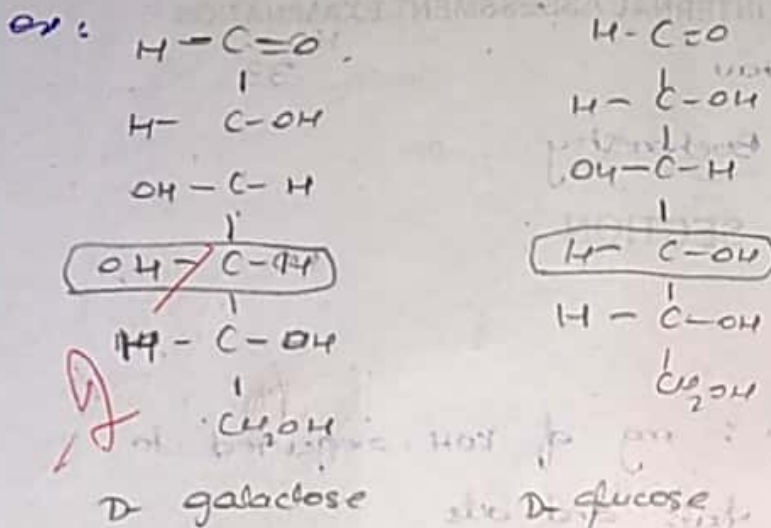 ex:
H - C = O
H - C - OH
OH - C - H
OH - C - H
H - C - OH
CH2OH
D galactose
H - C = O
H - C - OH
OH - C - H
H - C - OH
H - C - OH
CH2OH
D glucose